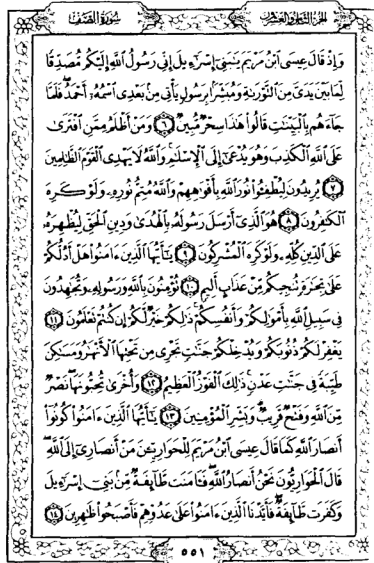 الجزء الثامن والعشرون
سورة الصف
وَإِذْ قَالَ عِيسَى ٱبْنُ مَرْيَمَ يَٰبَنِىٓ إِسْرَٰٓءِيلَ إِنِّى رَسُولُ ٱللَّهِ إِلَيْكُم مُّصَدِّقًا
لِّمَا بَيْنَ يَدَىَّ مِنَ ٱلتَّوْرَىٰةِ وَمُبَشِّرًۢا بِرَسُولٍ يَأْتِى مِنۢ بَعْدِى ٱسْمُهُۥٓ أَحْمَدُ فَلَمَّا
جَآءَهُم بِٱلْبَيِّنَٰتِ قَالُوا۟ هَٰذَا سِحْرٌ مُّبِينٌ ٦ وَمَنْ أَظْلَمُ مِمَّنِ ٱفْتَرَىٰ
عَلَى ٱللَّهِ ٱلْكَذِبَ وَهُوَ يُدْعَىٰٓ إِلَى ٱلْإِسْلَٰمِ وَٱللَّهُ لَا يَهْدِى ٱلْقَوْمَ ٱلظَّٰلِمِينَ
٧ يُرِيدُونَ لِيُطْفِـُٔوا۟ نُورَ ٱللَّهِ بِأَفْوَٰهِهِمْ وَٱللَّهُ مُتِمُّ نُورِهِۦ وَلَوْ كَرِهَ
ٱلْكَٰفِرُونَ ٨ هُوَ ٱلَّذِىٓ أَرْسَلَ رَسُولَهُۥ بِٱلْهُدَىٰ وَدِينِ ٱلْحَقِّ لِيُظْهِرَهُۥ
عَلَى ٱلدِّينِ كُلِّهِۦ وَلَوْ كَرِهَ ٱلْمُشْرِكُونَ ٩ يَٰٓأَيُّهَا ٱلَّذِينَ ءَامَنُوا۟ هَلْ أَدُلُّكُمْ
عَلَىٰ تِجَٰرَةٍ تُنجِيكُم مِّنْ عَذَابٍ أَلِيمٍ ١٠ تُؤْمِنُونَ بِٱللَّهِ وَرَسُولِهِۦ وَتُجَٰهِدُونَ
فِى سَبِيلِ ٱللَّهِ بِأَمْوَٰلِكُمْ وَأَنفُسِكُمْ ذَٰلِكُمْ خَيْرٌ لَّكُمْ إِن كُنتُمْ تَعْلَمُونَ ١١
يَغْفِرْ لَكُمْ ذُنُوبَكُمْ وَيُدْخِلْكُمْ جَنَّٰتٍ تَجْرِى مِن تَحْتِهَا ٱلْأَنْهَٰرُ وَمَسَٰكِنَ
طَيِّبَةً فِى جَنَّٰتِ عَدْنٍ ذَٰلِكَ ٱلْفَوْزُ ٱلْعَظِيمُ ١٢ وَأُخْرَىٰ تُحِبُّونَهَا نَصْرٌ
مِّنَ ٱللَّهِ وَفَتْحٌ قَرِيبٌ وَبَشِّرِ ٱلْمُؤْمِنِينَ ١٣ يَٰٓأَيُّهَا ٱلَّذِينَ ءَامَنُوا۟ كُونُوٓا۟
أَنصَارَ ٱللَّهِ كَمَا قَالَ عِيسَى ٱبْنُ مَرْيَمَ لِلْحَوَارِيِّۦنَ مَنْ أَنصَارِىٓ إِلَى ٱللَّهِ
قَالَ ٱلْحَوَارِيُّونَ نَحْنُ أَنصَارُ ٱللَّهِ فَـَٔامَنَت طَّآئِفَةٌ مِّنۢ بَنِىٓ إِسْرَٰٓءِيلَ
وَكَفَرَت طَّآئِفَةٌ فَأَيَّدْنَا ٱلَّذِينَ ءَامَنُوا۟ عَلَىٰ عَدُوِّهِمْ فَأَصْبَحُوا۟ ظَٰهِرِينَ ١٤
٥٥١